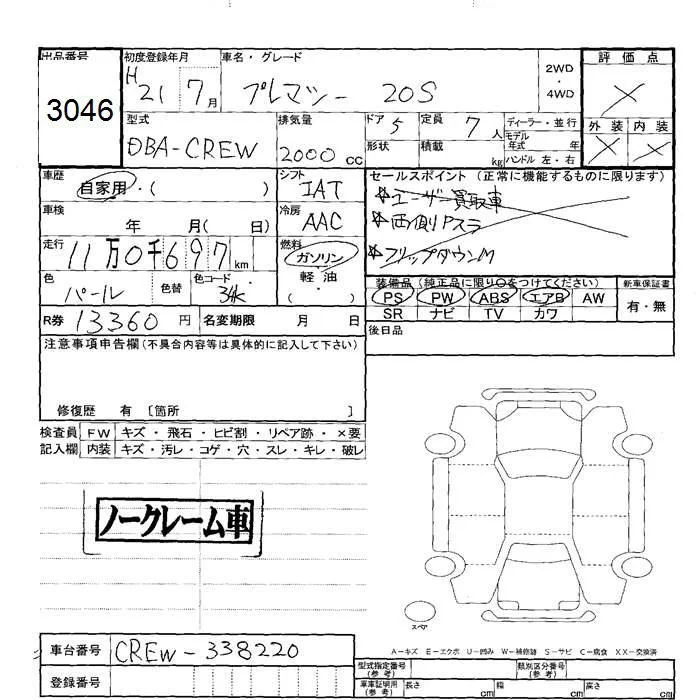 出品番号
3046
初度登録年月
H21 7月
車名・グレード
プレマシー 20S
2WD・4WD
評価点
×
外装 内装
× ×
型式
DBA-CREW
排気量
2000cc
ドア 5
形状
定員 7人
積載 kg
ディーラー・並行
モデル年式 年
ハンドル 左・右
車歴
自家用・( )
車検
年 月( 日)
走行
11万0千697km
色
パール
色替
色コード
34K
シフト
IAT
冷房
AAC
燃料
ガソリン
軽油
( )
セールスポイント (正常に機能するものに限ります)
ユーザー買取車
両側Pスラ
フリップダウンM
装備品(純正品に限り○をつけてください)
PS PW ABS エアB AW
SR ナビ TV カワ
新車保証書
有・無
後日品
R券 13360円
名変期限 月 日
注意事項申告欄(不具合内容等は具体的に記入して下さい)
修復歴 有 〔箇所 〕
検査員記入欄
FW キズ・飛石・ヒビ割・リペア跡・×要
内装 キズ・汚レ・コゲ・穴・スレ・キレ・破レ
ノークレーム車
スペア
A-キズ E-エクボ U-凹み W-補修跡 S-サビ C-腐食 XX-交換済
車台番号 CREW-338220
登録番号
型式指定番号(参考)
類別区分番号(参考)
車庫証明用(参考) 長さ cm 幅 cm 高さ cm